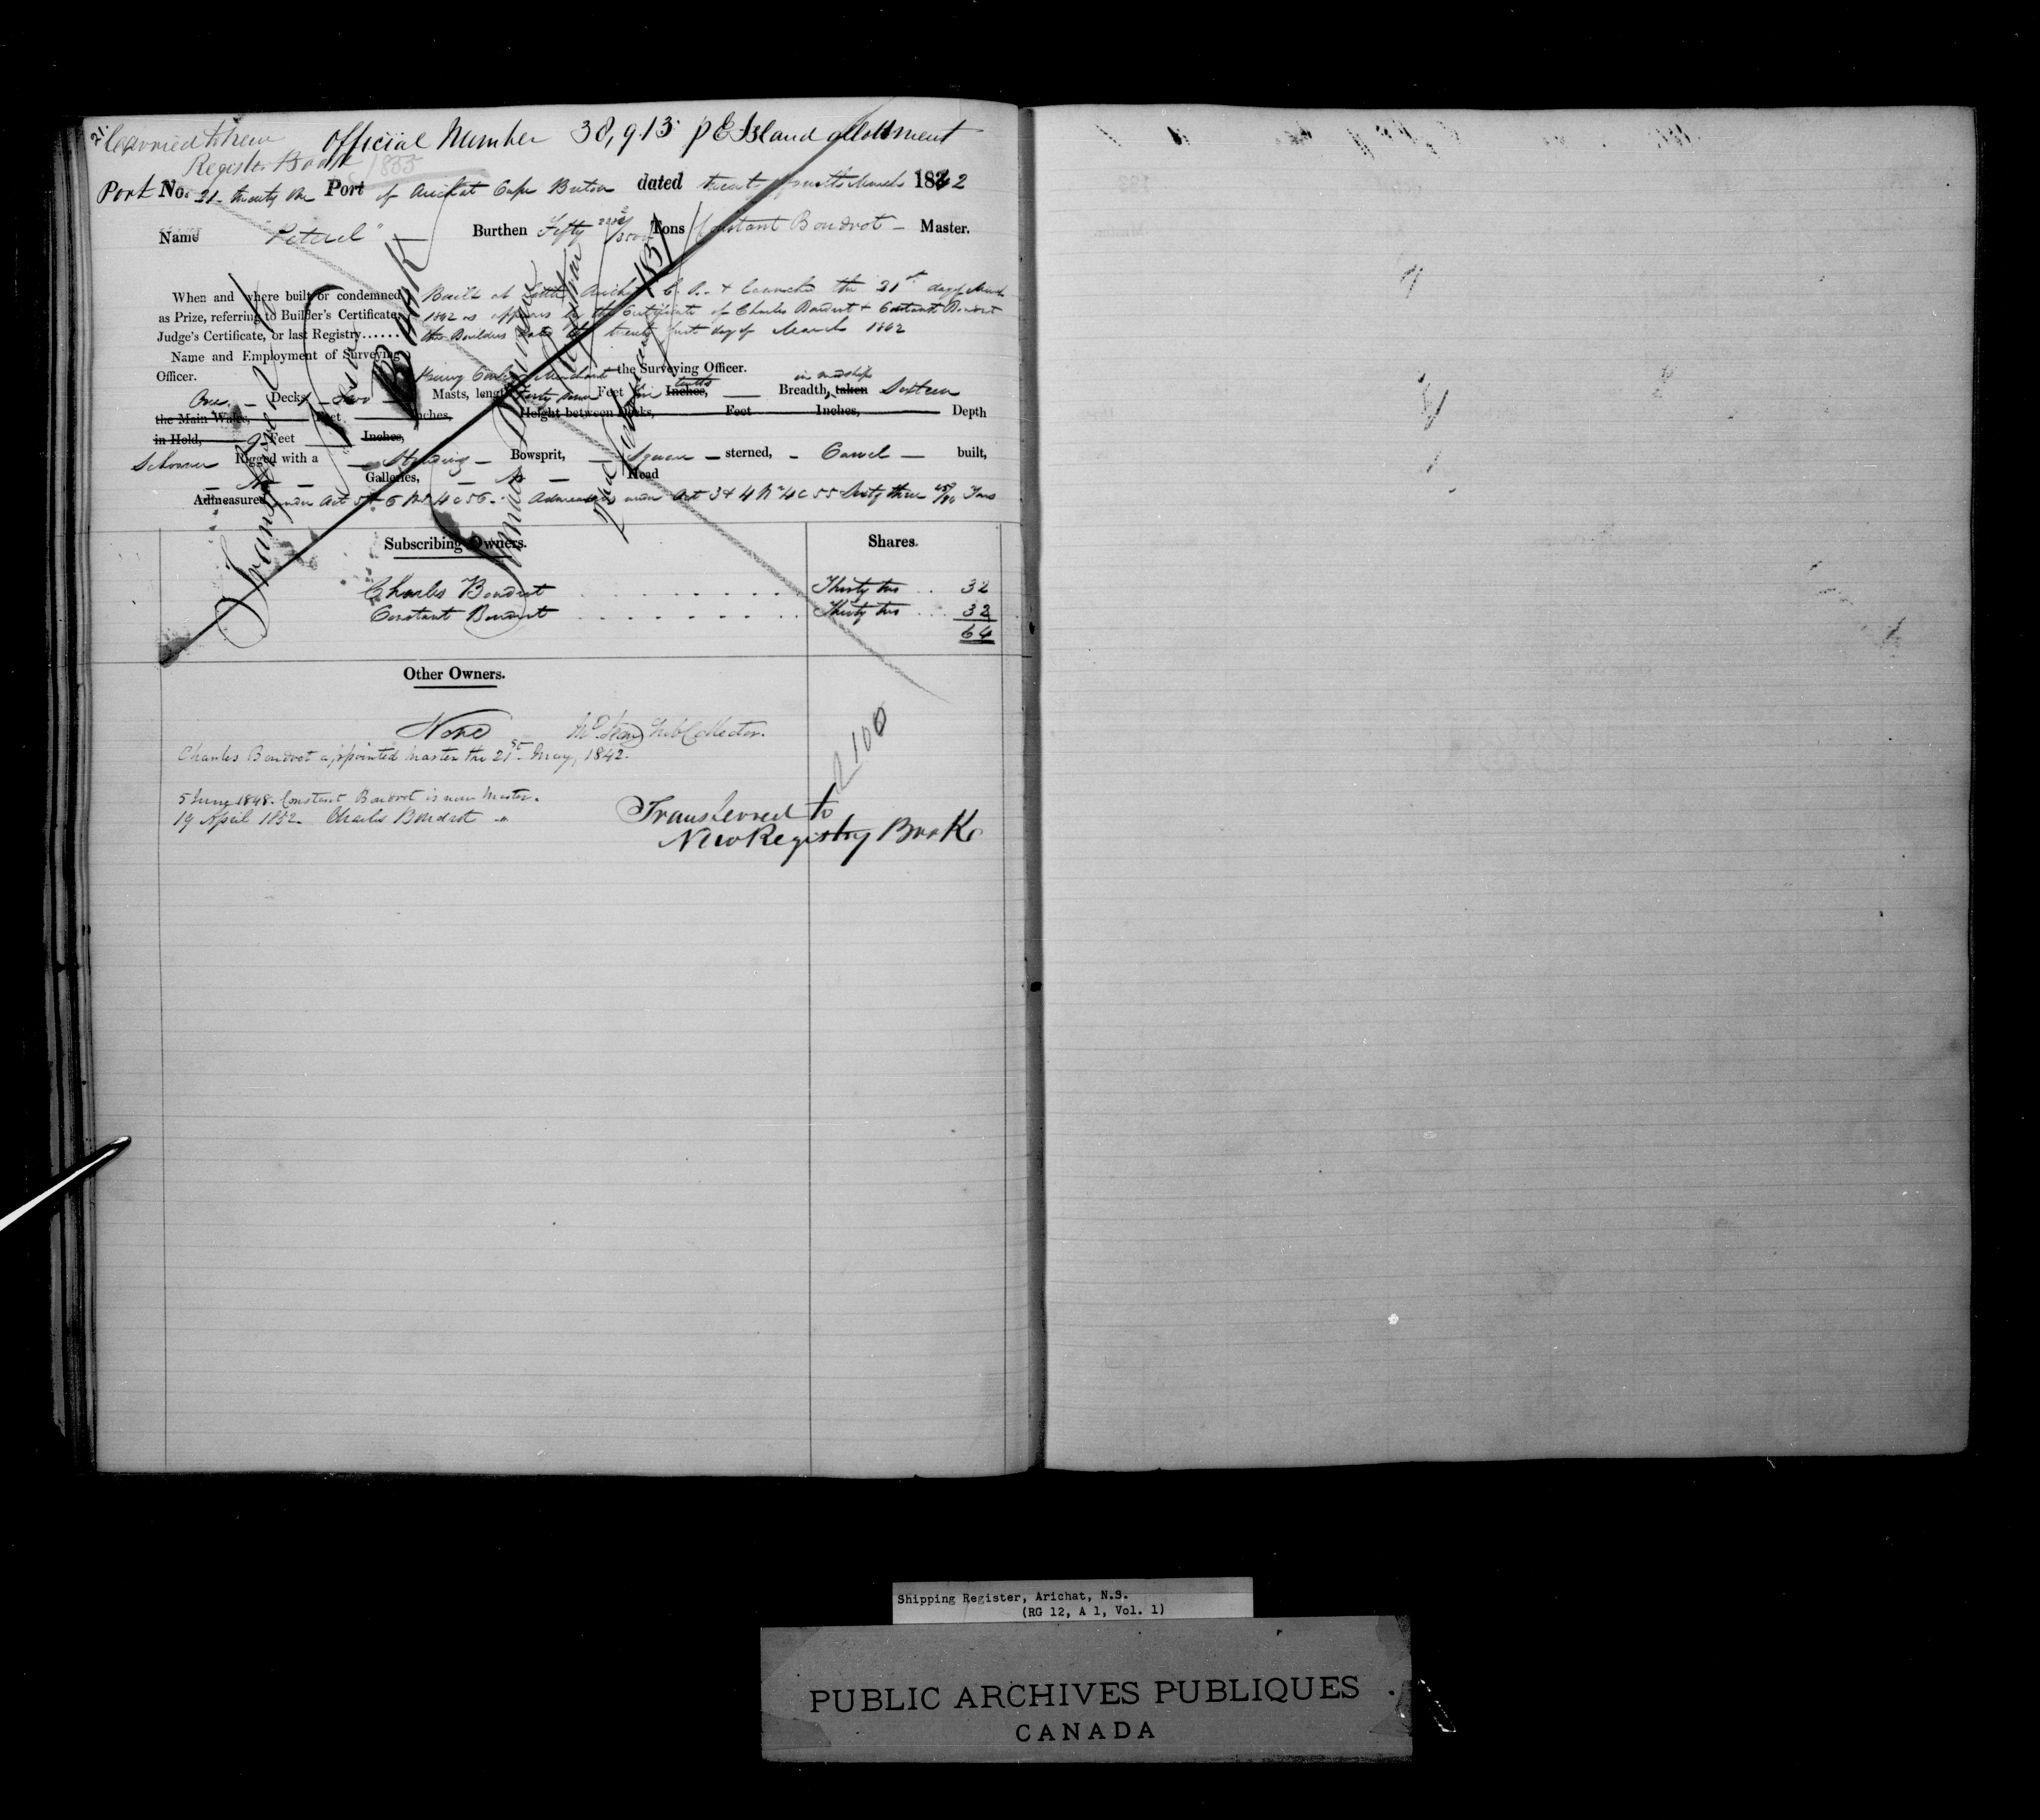 21.
Carried to New Official Number 38,913 P E Island allotment
Register Book 1855
Port No. 21 twenty one Port of Arichat Cape Breton dated March 1842
Name "Petrel" Burthen Fifty Tons Constant Boudrot Master.
When and where built or condemned Built at Little Arichat C.B. & launched the 21st day of March
as Prize, referring to Builder's Certificate, 1842 as appears by the Certificate of Charles Boudrot & Constant Boudrot
Judge's Certificate, or last Registry...... the Builders dated the twenty first day of March 1842
Name and Employment of Surveying
Officer. Merchant the Surveying Officer.
One Decks Two Masts, length Feet tenths Inches, Breadth, in midships taken Sixteen
the Main Wales, Feet Inches, Height between Decks, Feet Inches, Depth
in Hold, Feet Inches,
Schooner Rigged with a Standing Bowsprit, Square sterned, Carvel built,
No Galleries, No Head
Admeasured under Act 5 & 6 W 4 c 56. Admeasured under Act 3 & 4 W 4 c 55 Sixty three Tons
Subscribing Owners. Shares.
Charles Boudrot Thirty two 32
Constant Boudrot Thirty two 32
64
Other Owners.
None Sub Collector.
Charles Boudrot appointed Master the 21st May, 1842.
5 June 1848. Constant Boudrot is now Master.
19 April 1852. Charles Boudrot "
Transferred to
New Registry Book
Shipping Register, Arichat, N.S.
(RG 12, A 1, Vol. 1)
PUBLIC ARCHIVES PUBLIQUES
CANADA